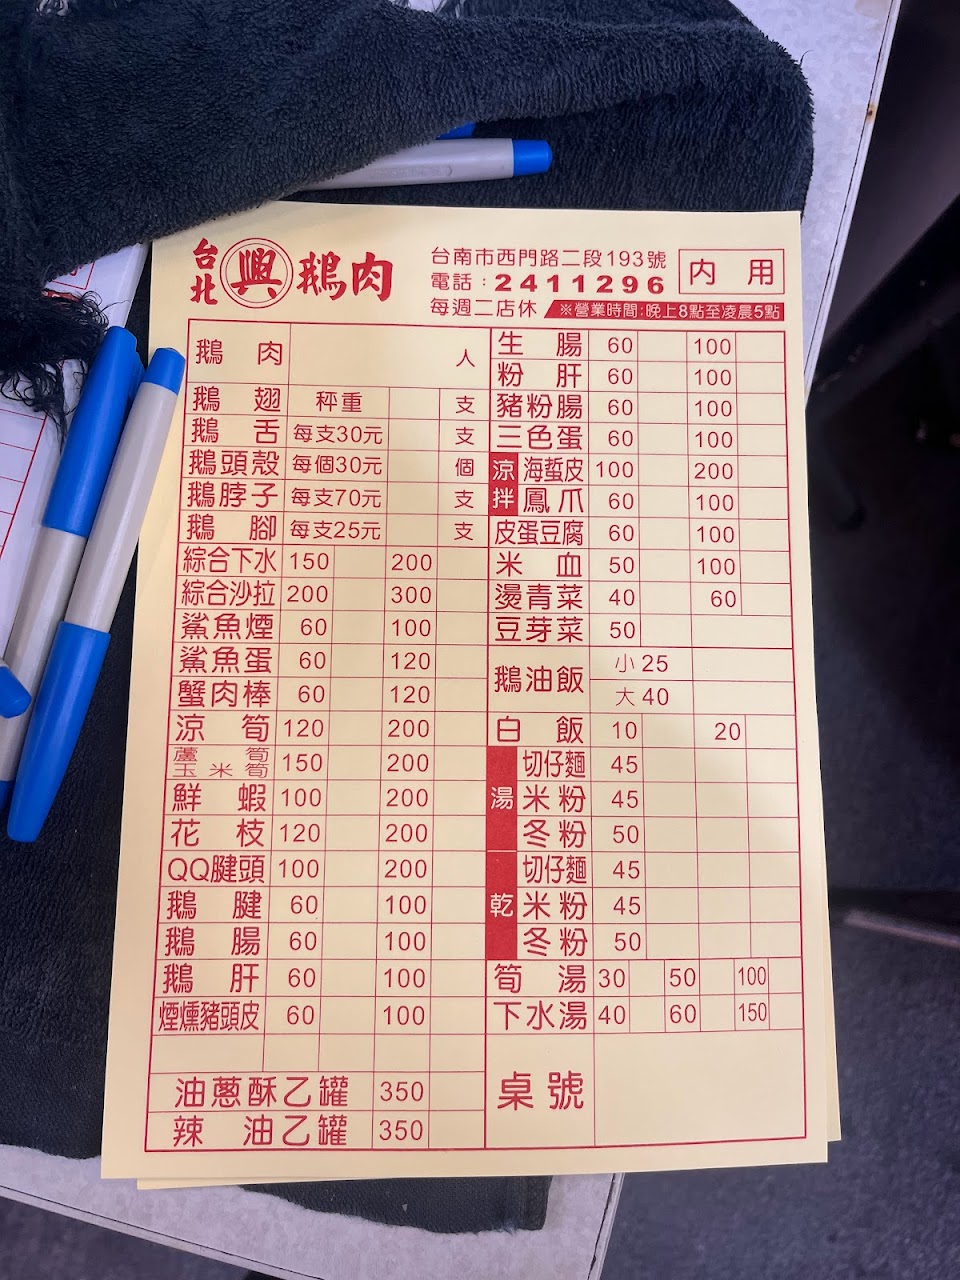 台北 興 鵝肉
台南市西門路二段193號
電話：2411296
每週二店休 ※營業時間:晚上8點至凌晨5點
內用
鵝肉 人
鵝翅 秤重 支
鵝舌 每支30元 支
鵝頭殼 每個30元 個
鵝脖子 每支70元 支
鵝腳 每支25元 支
綜合下水 150 200
綜合沙拉 200 300
鯊魚煙 60 100
鯊魚蛋 60 120
蟹肉棒 60 120
涼筍 120 200
蘆筍
玉米筍 150 200
鮮蝦 100 200
花枝 120 200
QQ腱頭 100 200
鵝腱 60 100
鵝腸 60 100
鵝肝 60 100
煙燻豬頭皮 60 100
油蔥酥乙罐 350
辣油乙罐 350
生腸 60 100
粉肝 60 100
豬粉腸 60 100
三色蛋 60 100
涼拌
海蜇皮 100 200
鳳爪 60 100
皮蛋豆腐 60 100
米血 50 100
燙青菜 40 60
豆芽菜 50
鵝油飯 小25
大40
白飯 10 20
湯
切仔麵 45
米粉 45
冬粉 50
乾
切仔麵 45
米粉 45
冬粉 50
筍湯 30 50 100
下水湯 40 60 150
桌號